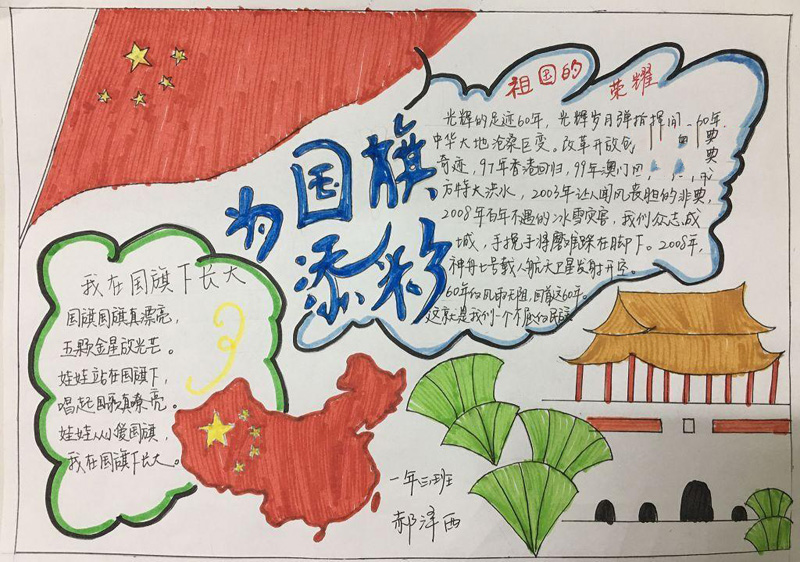 祖国的荣耀
光辉的足迹60年,光辉岁月弹指挥间,60年,
中华大地沧桑巨变。改革开放创 典典
奇迹,97年香港回归,99年澳门回
方特大洪水,2003年让人闻风丧胆的非典,
2008年百年不遇的冰雪灾害,我们众志成
城,手挽手将磨难踩在脚下。2008年,
神舟七号载人航天卫星发射开空。
60年的风雨无阻,回首这60年。
这就是我们一个不屈的民族
为国旗
添彩
我在国旗下长大
国旗国旗真漂亮,
五颗金星放光芒。
娃娃站在国旗下,
唱起国歌真嘹亮。
娃娃从小爱国旗,
我在国旗下长大。
一年三班
郝泽西